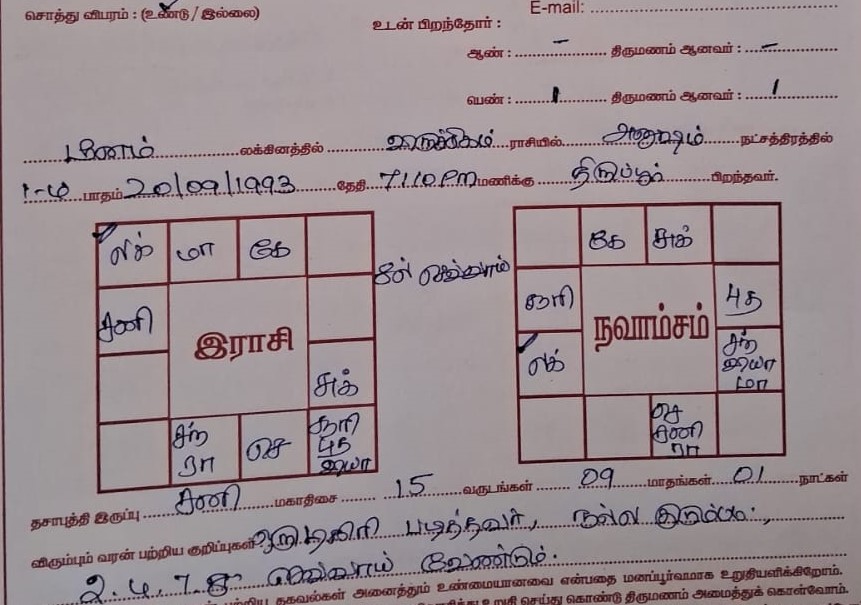 சொத்து விபரம் : (உண்டு / இல்லை)
E-mail:
உடன் பிறந்தோர் :
ஆண் : – திருமணம் ஆனவர் : –
பெண் : 1 திருமணம் ஆனவர் : 1
மீனம் லக்கினத்தில் விருச்சிகம் ராசியில் அனுஷம் நட்சத்திரத்தில்
1-ம் பாதம் 20/09/1993 தேதி 7.10 PM மணிக்கு திருப்பூர் பிறந்தவர்.
லக் மா கே
சனி
இராசி
சுக்
சந் ரா
செ
சூரி புத வியா
8ல் செவ்வாய்
கே சுக்
சூரி
புத
நவாம்சம்
லக்
சந் வியா மா
செ சனி ரா
தசாபுத்தி இருப்பு சனி மகாதிசை 15 வருடங்கள் 09 மாதங்கள் 01 நாட்கள்
விரும்பும் வரன் பற்றிய குறிப்புகள் ஒரு டிகிரி படித்தவர், நல்ல குடும்பம்,
2. 4. 7. 8 செவ்வாய் வேண்டும்.
பற்றிய தகவல்கள் அனைத்தும் உண்மையானவை என்பதை மனப்பூர்வமாக உறுதியளிக்கிறோம்.
உறுதி செய்து கொண்டு திருமணம் அமைத்துக் கொள்வோம்.